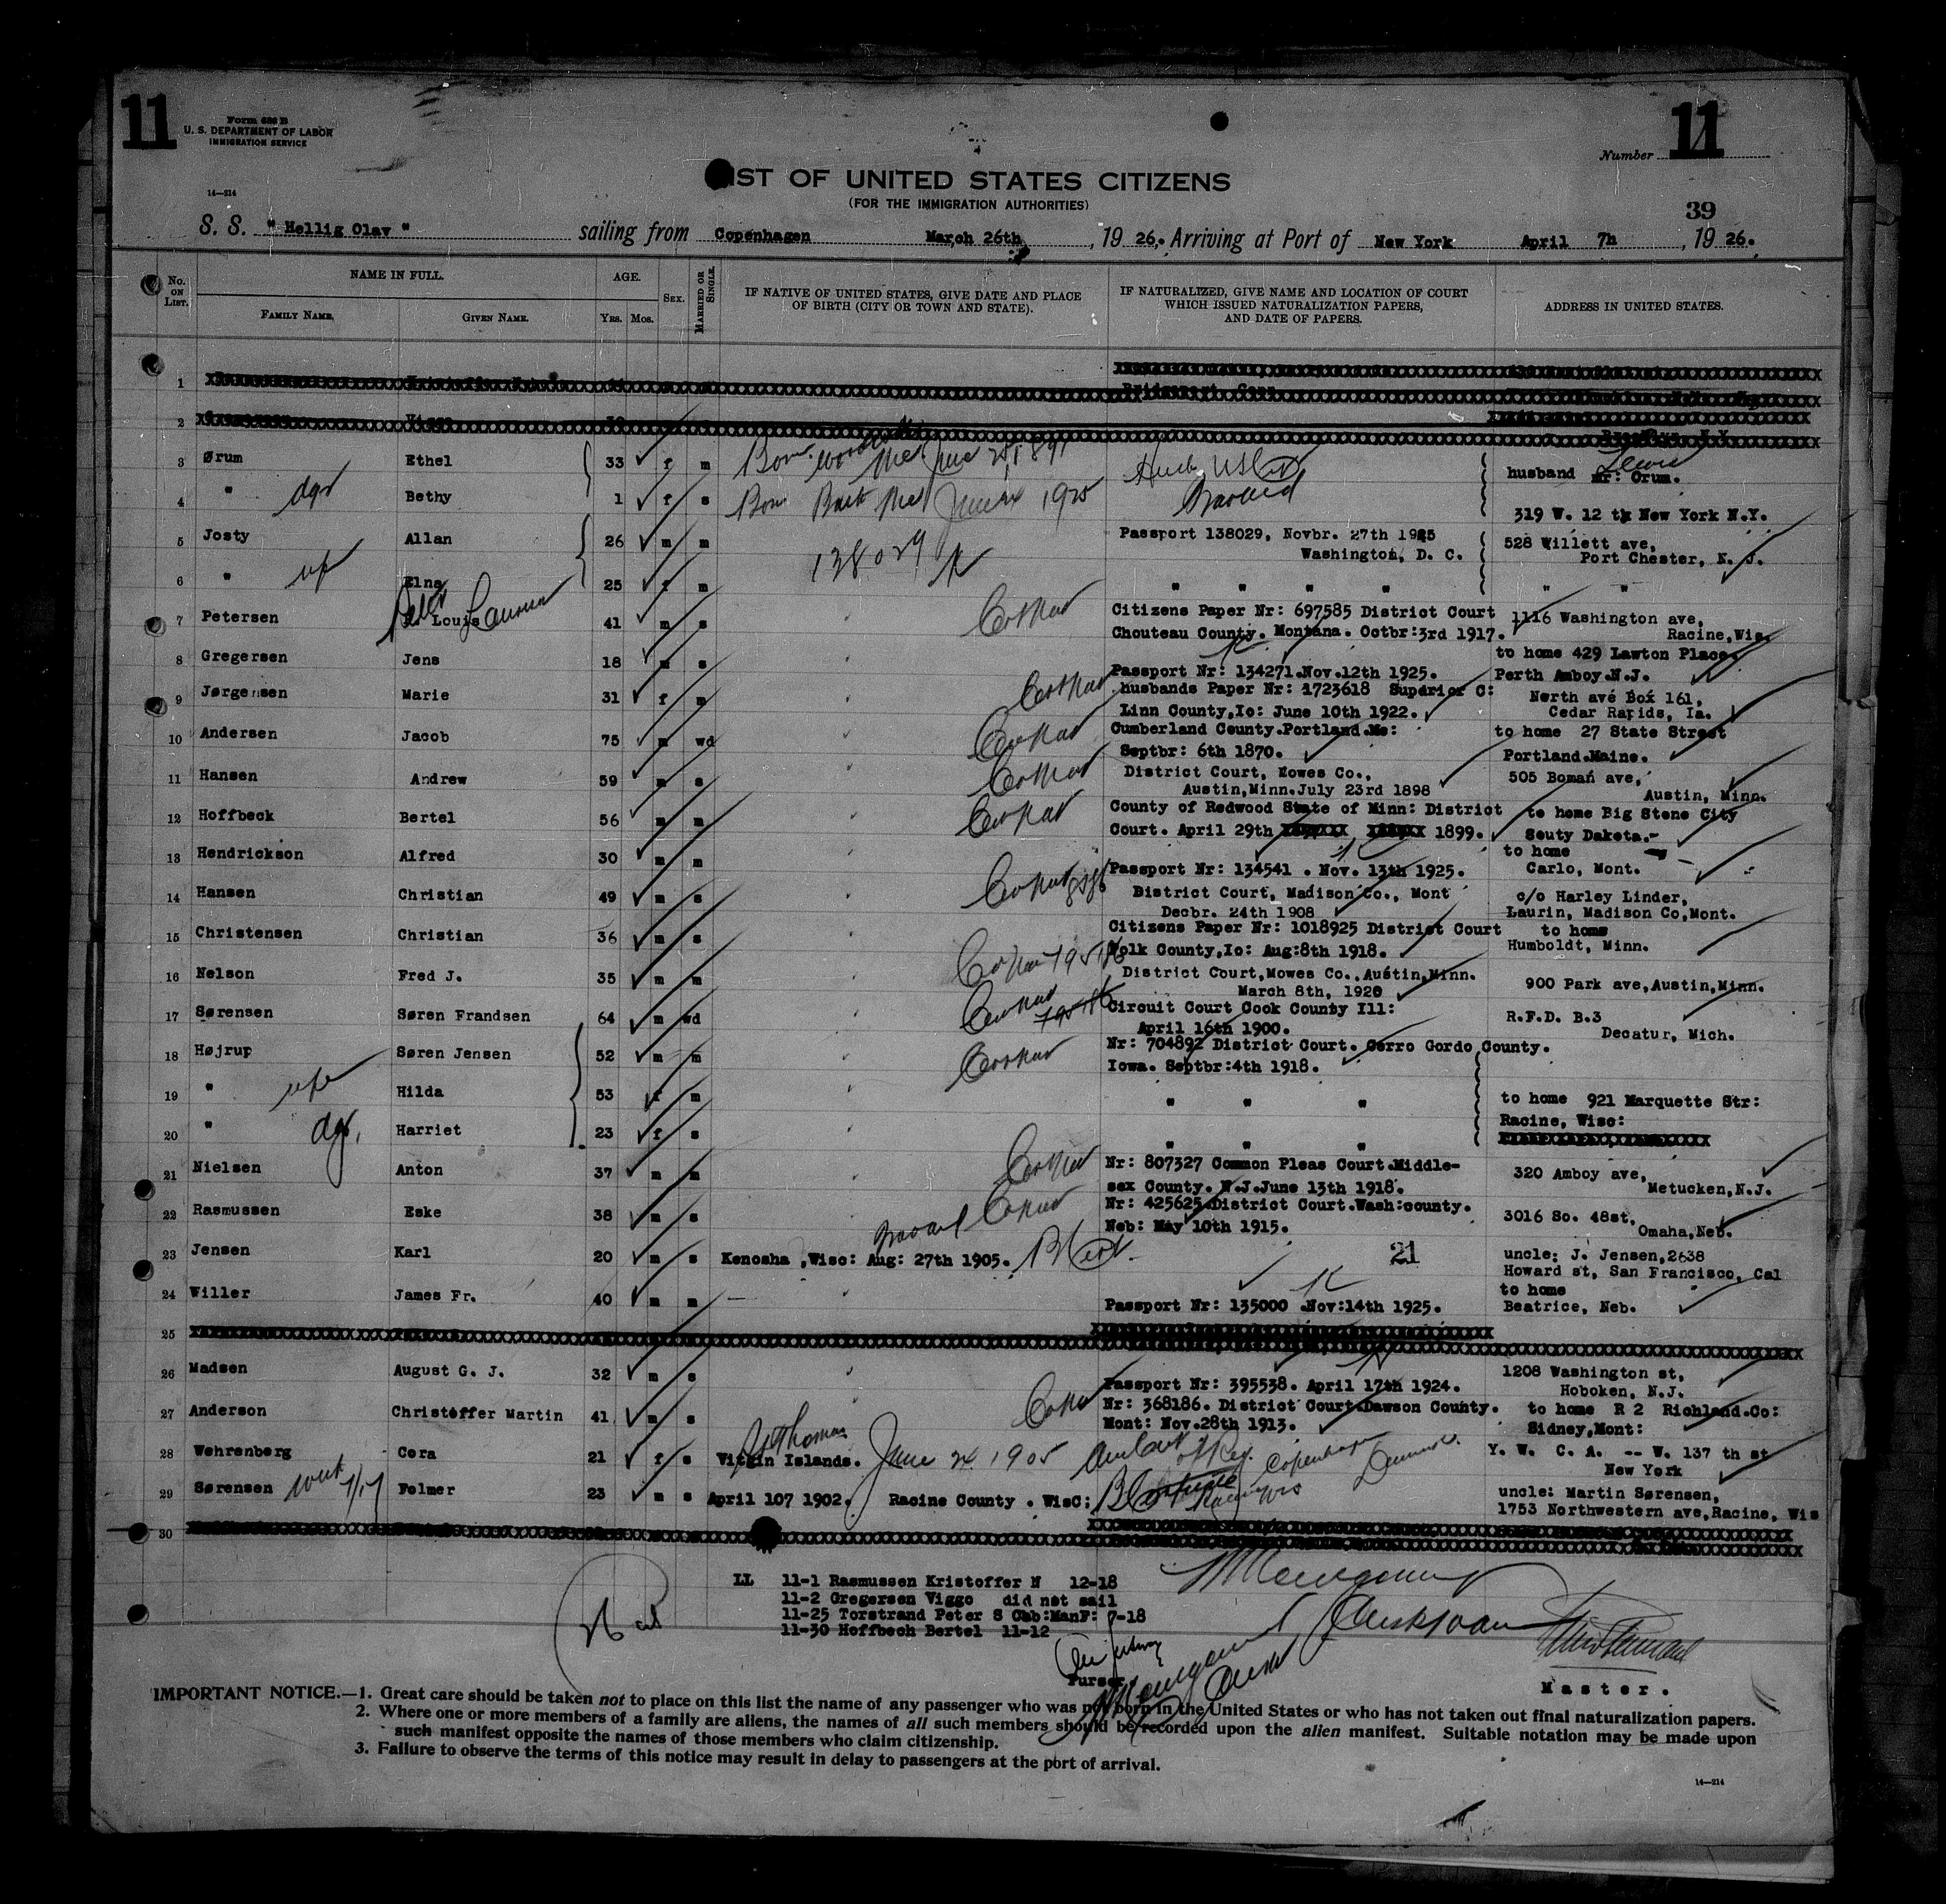 11
Form 686 B
U. S. DEPARTMENT OF LABOR
IMMIGRATION SERVICE
Number 11
14—214
LIST OF UNITED STATES CITIZENS
(FOR THE IMMIGRATION AUTHORITIES)
39
S. S. "Hellig Olav" sailing from Copenhagen March 26th, 19 26. Arriving at Port of New York April 7h, 19 26.
No. ON LIST. NAME IN FULL. FAMILY NAME. GIVEN NAME. AGE. YRS. MOS. SEX. MARRIED OR SINGLE. IF NATIVE OF UNITED STATES, GIVE DATE AND PLACE OF BIRTH (CITY OR TOWN AND STATE). IF NATURALIZED, GIVE NAME AND LOCATION OF COURT WHICH ISSUED NATURALIZATION PAPERS, AND DATE OF PAPERS. ADDRESS IN UNITED STATES.
1
2
3 Ørum Ethel 33 f m Born June husband Mr: Orum. Lewis
4 " dgr Bethy 1 f s Born 1925 319 W. 12 th New York N.Y.
5 Josty Allan 26 m m 138029 Passport 138029, Novbr. 27th 1925 Washington, D. C. 528 Willett ave, Port Chester, N. J.
6 " Elna 25 f m " " " " " "
7 Petersen Louis 41 m s Citizens Paper Nr: 697585 District Court Chouteau County. Montana. Octbr:3rd 1917. 1116 Washington ave, Racine,Wis.
8 Gregersen Jens 18 m s Passport Nr: 134271.Nov.12th 1925. to home 429 Lawton Place. Perth Amboy.N.J.
9 Jørgensen Marie 31 f m husbands Paper Nr: 1723618 Superior C: Linn County,Io: June 10th 1922. North ave Box 161, Cedar Rapids, Ia.
10 Andersen Jacob 75 m wd Cumberland County.Portland.Me: Septbr: 6th 1870. to home 27 State Street Portland.Maine.
11 Hansen Andrew 59 m s District Court, Mowes Co., Austin,Minn.July 23rd 1898 505 Boman ave, Austin, Minn.
12 Hoffbeck Bertel 56 m m County of Redwood State of Minn: District Court. April 29th 1899. to home Big Stone City Souty Dakota.-
13 Hendrickson Alfred 30 m m Passport Nr: 134541 . Nov. 13th 1925. to home Carlo, Mont.
14 Hansen Christian 49 m s District Court, Madison Co., Mont Decbr. 24th 1908 c/o Harley Linder, Laurin, Madison Co,Mont.
15 Christensen Christian 36 m s Citizens Paper Nr: 1018925 District Court Polk County,Io: Aug:8th 1918. to home Humboldt, Minn.
16 Nelson Fred J. 35 m m District Court,Mowes Co., Austin,Minn. March 8th, 1920 900 Park ave,Austin,Minn.
17 Sørensen Søren Frandsen 64 m wd Circuit Court Cook County Ill: April 16th 1900. R.F.D. B.3 Decatur, Mich.
18 Højrup Søren Jensen 52 m m Nr: 704892 District Court. Cerro Gordo County. Iowa. Septbr:4th 1918.
19 " Hilda 53 f m " " " to home 921 Marquette Str:
20 " dgr. Harriet 23 f s " " " Racine, Wisc:
21 Nielsen Anton 37 m m Nr: 807327 Common Pleas Court.Middle-sex County. N.J.June 13th 1918. 320 Amboy ave, Metucken,N.J.
22 Rasmussen Eske 38 m s Nr: 425625.District Court.Wash:county. Neb: May 10th 1915. 3016 So. 48st, Omaha,Neb.
23 Jensen Karl 20 m s Kenosha ,Wisc: Aug: 27th 1905. 21 uncle: J. Jensen,2638 Howard st, San Francisco, Cal
24 Willer James Fr. 40 m m Passport Nr: 135000 .Nov:14th 1925. to home Beatrice, Neb.
25
26 Madsen August G. J. 32 m s Passport Nr: 395538. April 17th 1924. 1208 Washington st, Hoboken, N.J.
27 Anderson Christoffer Martin 41 m s Nr: 368186. District Court.Dawson County. Mont: Nov.28th 1913. to home R 2 Richland.Co: Sidney,Mont:
28 Wehrenberg Cora 21 f s St Thomas Virgin Islands. June 24 1905 Copenhagen Y. W. C. A. -- W. 137 th st New York
29 Sørensen Folmer 23 m s April 107 1902. Racine County . WisC: uncle: Martin Sørensen, 1753 Northwestern ave,Racine, Wis
30
LL 11-1 Rasmussen Kristoffer N 12-18
11-2 Gregersen Viggo did not sail
11-25 Torstrand Peter S Cab:ManF: 7-18
11-30 Hoffbech Bertel 11-12
Purser
Master.
IMPORTANT NOTICE.—1. Great care should be taken not to place on this list the name of any passenger who was not born in the United States or who has not taken out final naturalization papers.
2. Where one or more members of a family are aliens, the names of all such members should be recorded upon the alien manifest. Suitable notation may be made upon
such manifest opposite the names of those members who claim citizenship.
3. Failure to observe the terms of this notice may result in delay to passengers at the port of arrival.
14—214